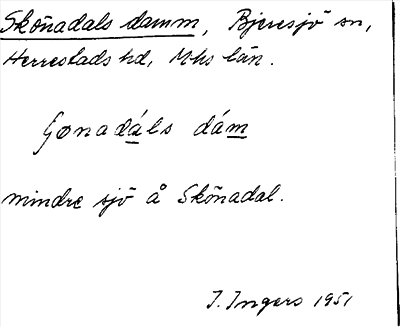 Skönadals damm, Bjeresjö sn,
Herrestads hd, Mhs län.
Gønadáls dám
mindre sjö å Skönadal.
I. Ingers 1951